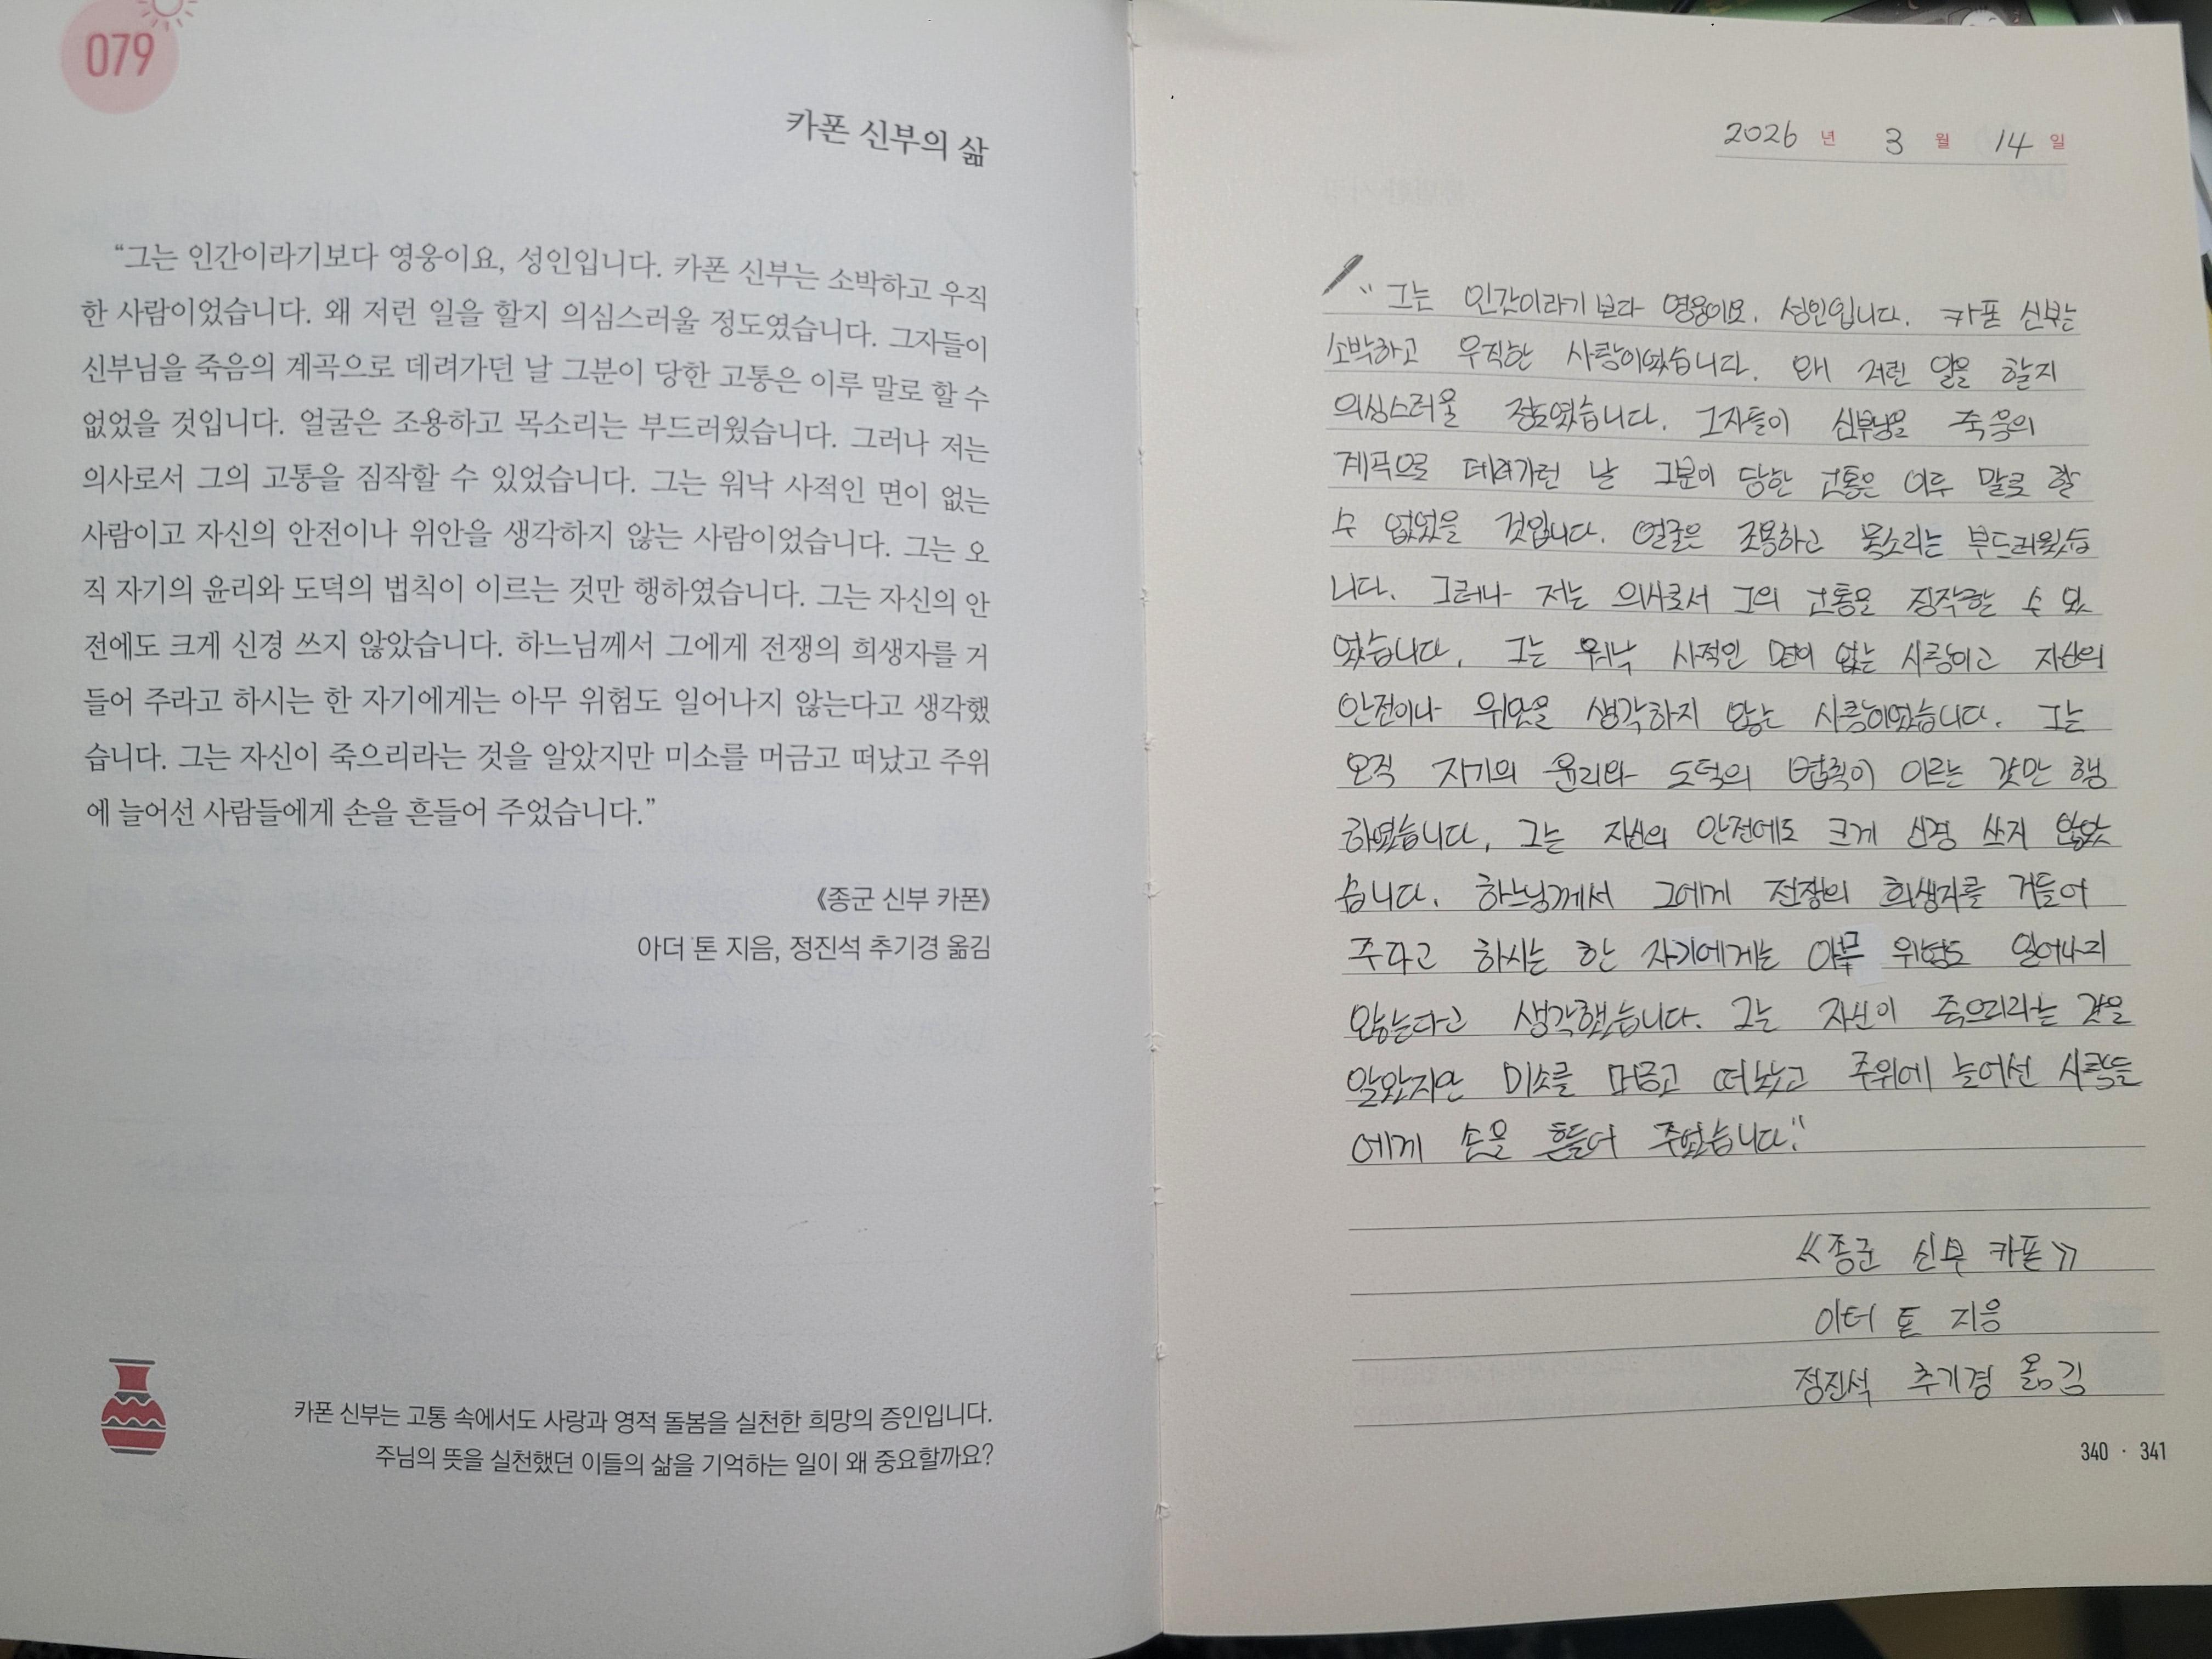 079
카폰 신부의 삶
“그는 인간이라기보다 영웅이요, 성인입니다. 카폰 신부는 소박하고 우직
한 사람이었습니다. 왜 저런 일을 할지 의심스러울 정도였습니다. 그자들이
신부님을 죽음의 계곡으로 데려가던 날 그분이 당한 고통은 이루 말로 할 수
없었을 것입니다. 얼굴은 조용하고 목소리는 부드러웠습니다. 그러나 저는
의사로서 그의 고통을 짐작할 수 있었습니다. 그는 워낙 사적인 면이 없는
사람이고 자신의 안전이나 위안을 생각하지 않는 사람이었습니다. 그는 오
직 자기의 윤리와 도덕의 법칙이 이르는 것만 행하였습니다. 그는 자신의 안
전에도 크게 신경 쓰지 않았습니다. 하느님께서 그에게 전쟁의 희생자를 거
들어 주라고 하시는 한 자기에게는 아무 위험도 일어나지 않는다고 생각했
습니다. 그는 자신이 죽으리라는 것을 알았지만 미소를 머금고 떠났고 주위
에 늘어선 사람들에게 손을 흔들어 주었습니다.”
《종군 신부 카폰》
아더 톤 지음, 정진석 추기경 옮김
카폰 신부는 고통 속에서도 사랑과 영적 돌봄을 실천한 희망의 증인입니다.
주님의 뜻을 실천했던 이들의 삶을 기억하는 일이 왜 중요할까요?
2026 년 3 월 14 일
“그는 인간이라기보다 영웅이요. 성인입니다. 카폰 신부는
소박하고 우직한 사람이었습니다. 왜 저런 일을 할지
의심스러울 정도였습니다. 그자들이 신부님을 죽음의
계곡으로 데려가던 날 그분이 당한 고통은 이루 말로 할
수 없었을 것입니다. 얼굴은 조용하고 목소리는 부드러웠습
니다. 그러나 저는 의사로서 그의 고통을 짐작할 수 있
었습니다. 그는 워낙 사적인 면이 없는 사람이고 자신의
안전이나 위안을 생각하지 않는 사람이었습니다. 그는
오직 자기의 윤리와 도덕의 법칙이 이르는 것만 행
하였습니다. 그는 자신의 안전에도 크게 신경 쓰지 않았
습니다. 하느님께서 그에게 전쟁의 희생자를 거들어
주라고 하시는 한 자기에게는 아무 위험도 일어나지
않는다고 생각했습니다. 그는 자신이 죽으리라는 것을
알았지만 미소를 머금고 떠났고 주위에 늘어선 사람들
에게 손을 흔들어 주었습니다.”
《종군 신부 카폰》
아더 톤 지음
정진석 추기경 옮김
340 · 341